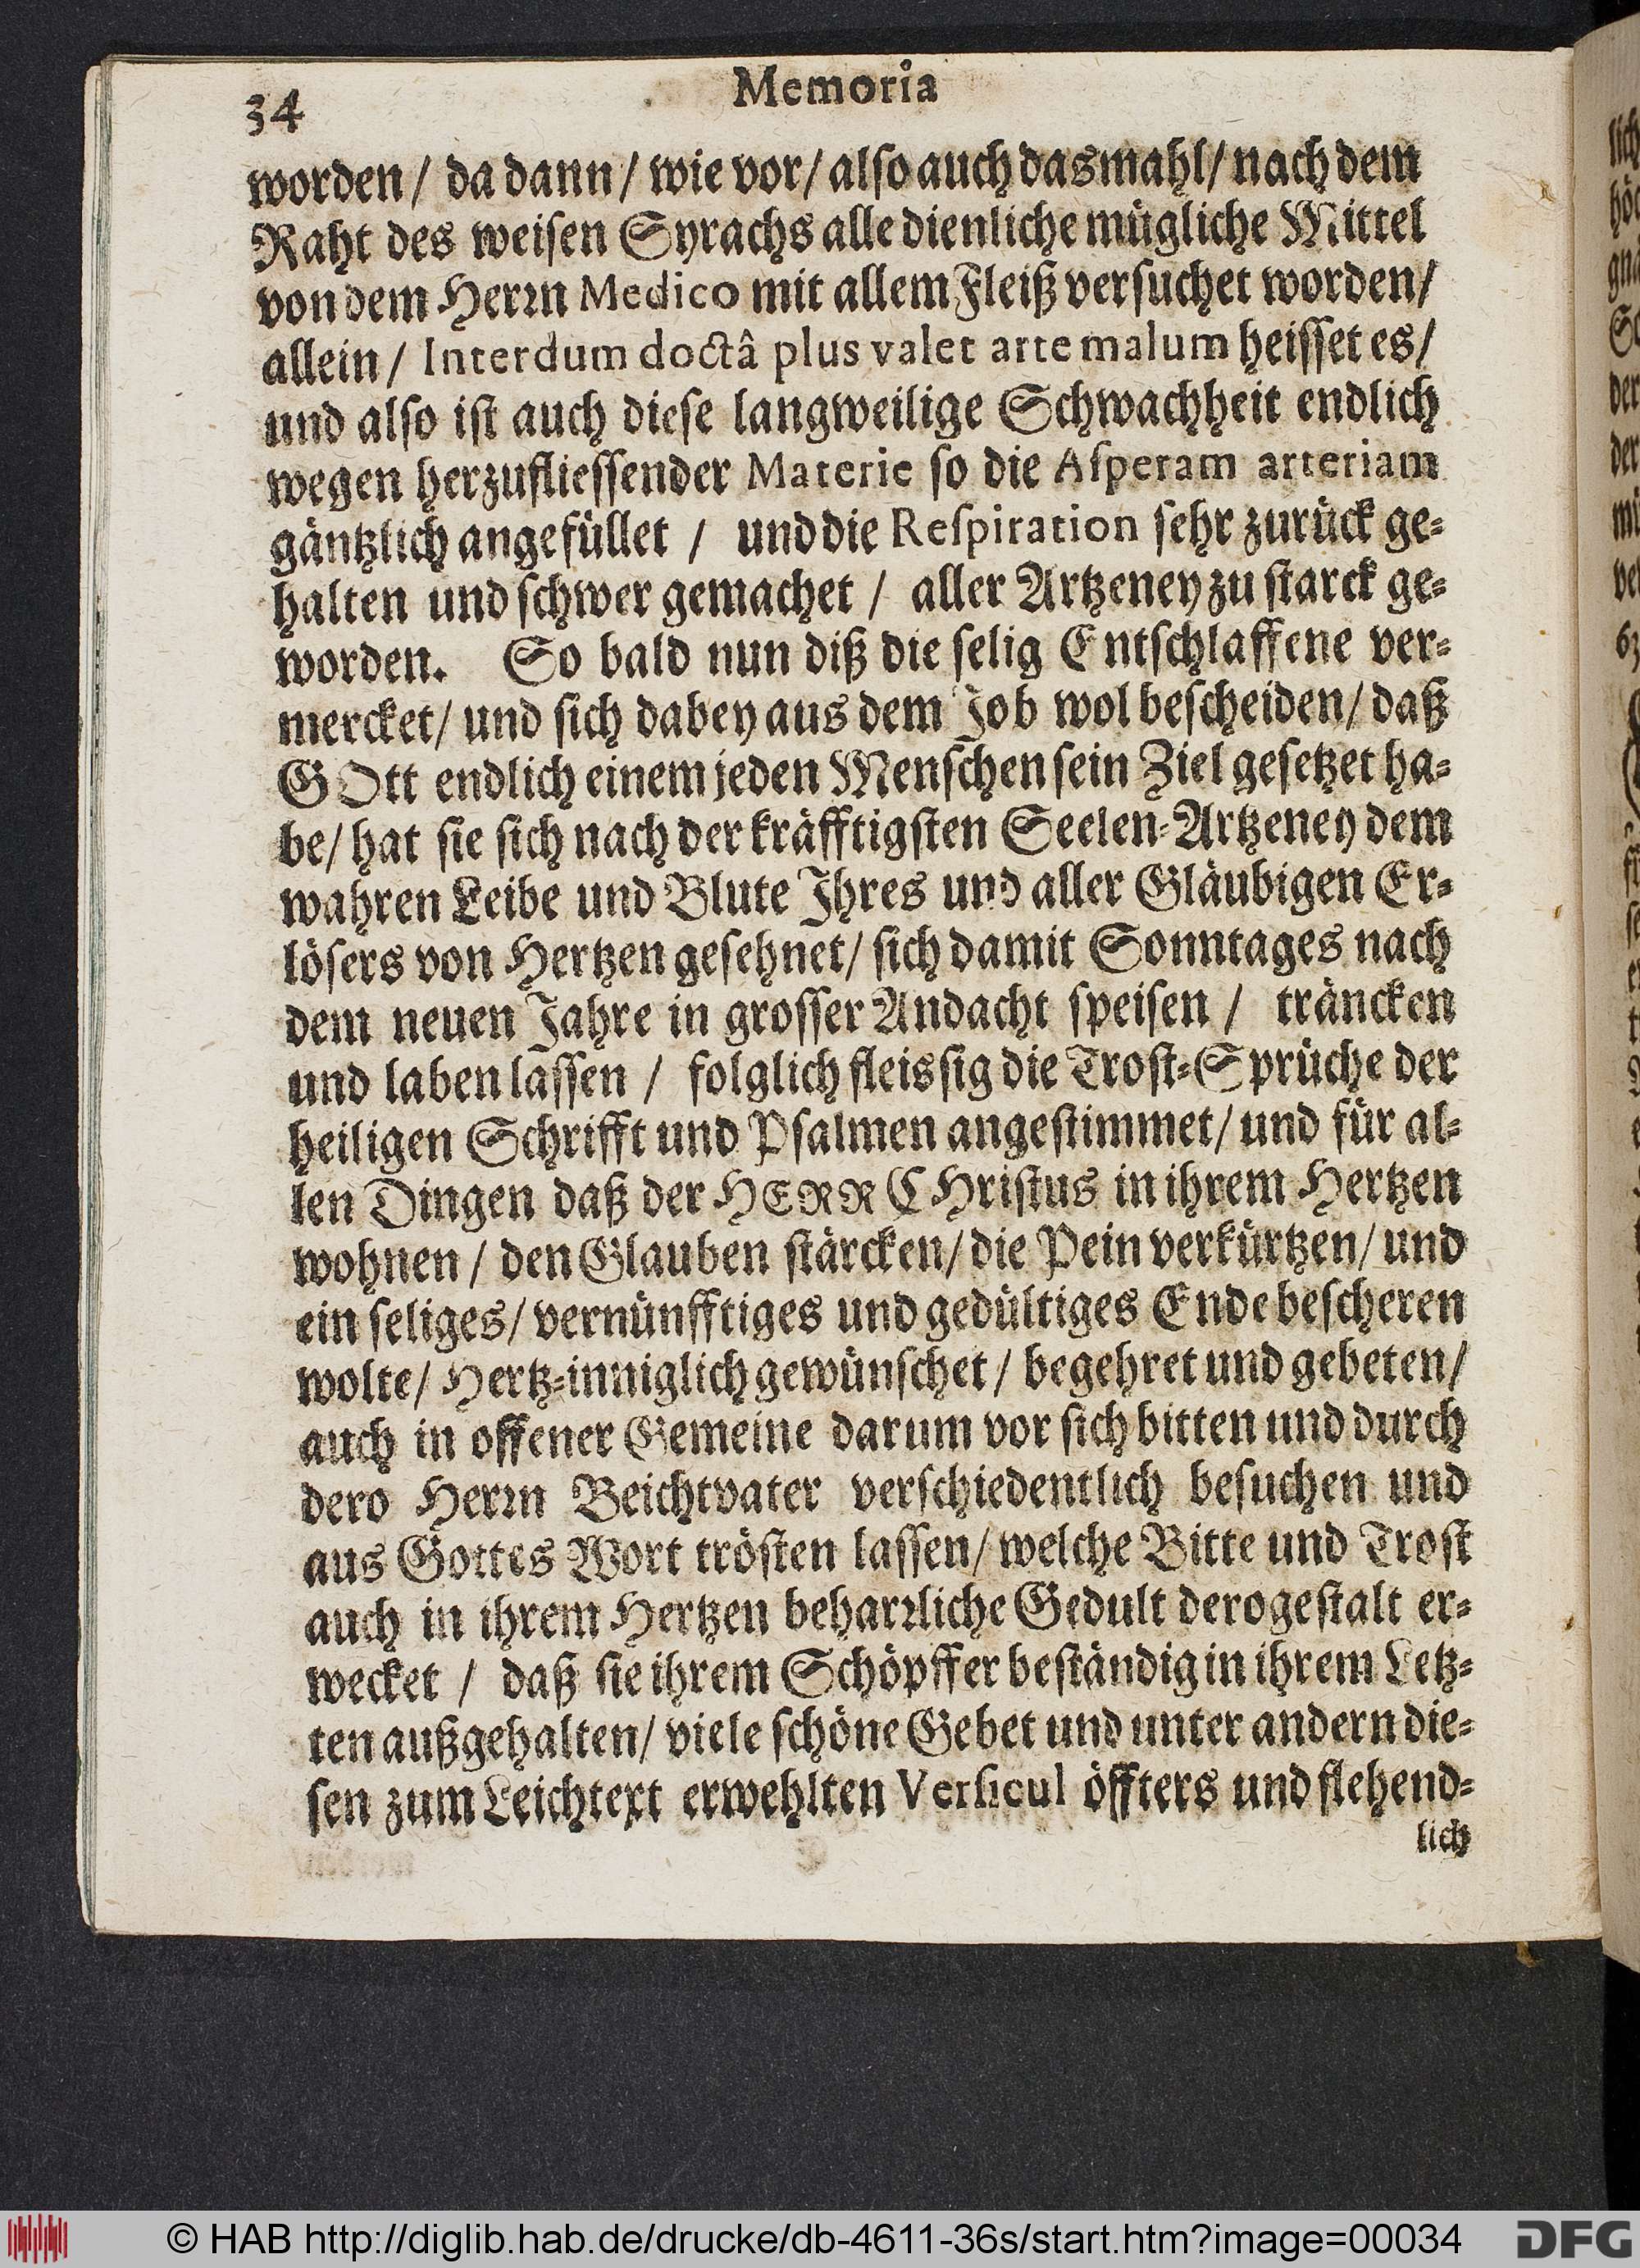 34
Memoria
worden/ da dann/ wie vor/ also auch dasmahl/ nach dem
Raht des weisen Syrachs alle dienliche mügliche Mittel
von dem Herrn Medico mit allem Fleiß versuchet worden/
allein/ Interdum doctâ plus valet arte malum heisset es/
und also ist auch diese langweilige Schwachheit endlich
wegen herzufliessender Materie so die Asperam arteriam
gäntzlich angefüllet / und die Respiration sehr zurück ge-
halten und schwer gemachet / aller Artzeney zu starck ge-
worden. So bald nun diß die selig Entschlaffene ver-
mercket/ und sich dabey aus dem Job wol bescheiden/ daß
GOtt endlich einem jeden Menschen sein Ziel gesetzet ha-
be/ hat sie sich nach der kräfftigsten Seelen-Artzeney dem
wahren Leibe und Blute Ihres und aller Gläubigen Er-
lösers von Hertzen gesehnet/ sich damit Sonntages nach
dem neuen Jahre in grosser Andacht speisen / träncken
und laben lassen / folglich fleissig die Trost-Sprüche der
heiligen Schrifft und Psalmen angestimmet/ und für al-
len Dingen daß der HERR CHristus in ihrem Hertzen
wohnen / den Glauben stärcken/ die Pein verkürtzen/ und
ein seliges/ vernünfftiges und gedültiges Ende bescheren
wolte/ Hertz-inniglich gewünschet / begehret und gebeten/
auch in offener Gemeine darum vor sich bitten und durch
dero Herrn Beichtvater verschiedentlich besuchen und
aus Gottes Wort trösten lassen/ welche Bitte und Trost
auch in ihrem Hertzen beharrliche Gedult derogestalt er-
wecket / daß sie ihrem Schöpffer beständig in ihrem Letz-
ten außgehalten/ viele schöne Gebet und unter andern die-
sen zum Leichtext erwehlten Versicul öffters und flehend-
lich
© HAB http://diglib.hab.de/drucke/db-4611-36s/start.htm?image=00034
DFG